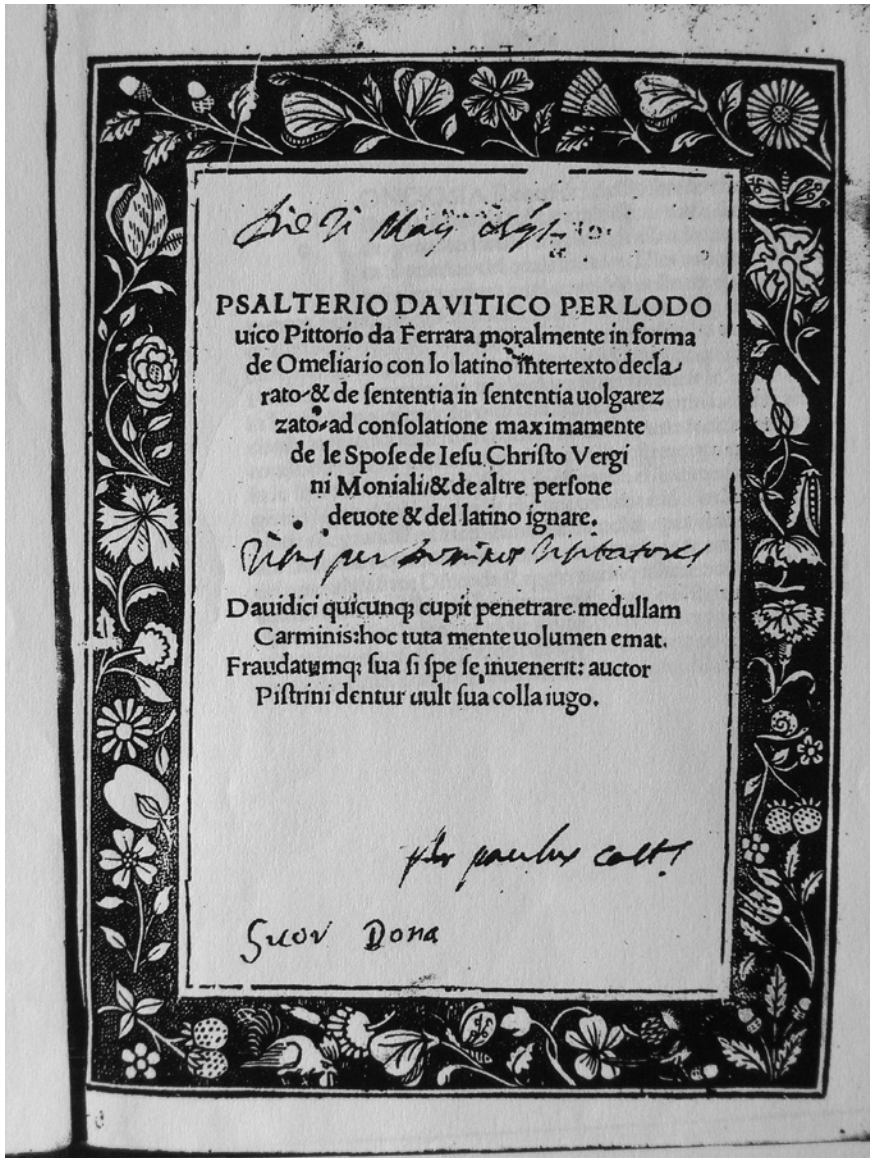 die
PSALTERIO DAVITICO PER LODO
uico Pittorio da Ferrara moralmente in forma
de Omeliario con lo latino intertexto decla⸗
rato⸗& de ſententia in ſententia uolgarez
zato⸗ad conſolatione maximamente
de le Spoſe de Ieſu Chriſto Vergi
ni Moniali⸗& de altre perſone
deuote & del latino ignare.
per viſitatores
Dauidici quicunqꝫ cupit penetrare medullam
Carminis:hoc tuta mente uolumen emat.
Fraudatumqꝫ ſua ſi ſpe ſe inuenerit: auctor
Piſtrini dentur uult ſua colla iugo.
paulus
Suor Dona